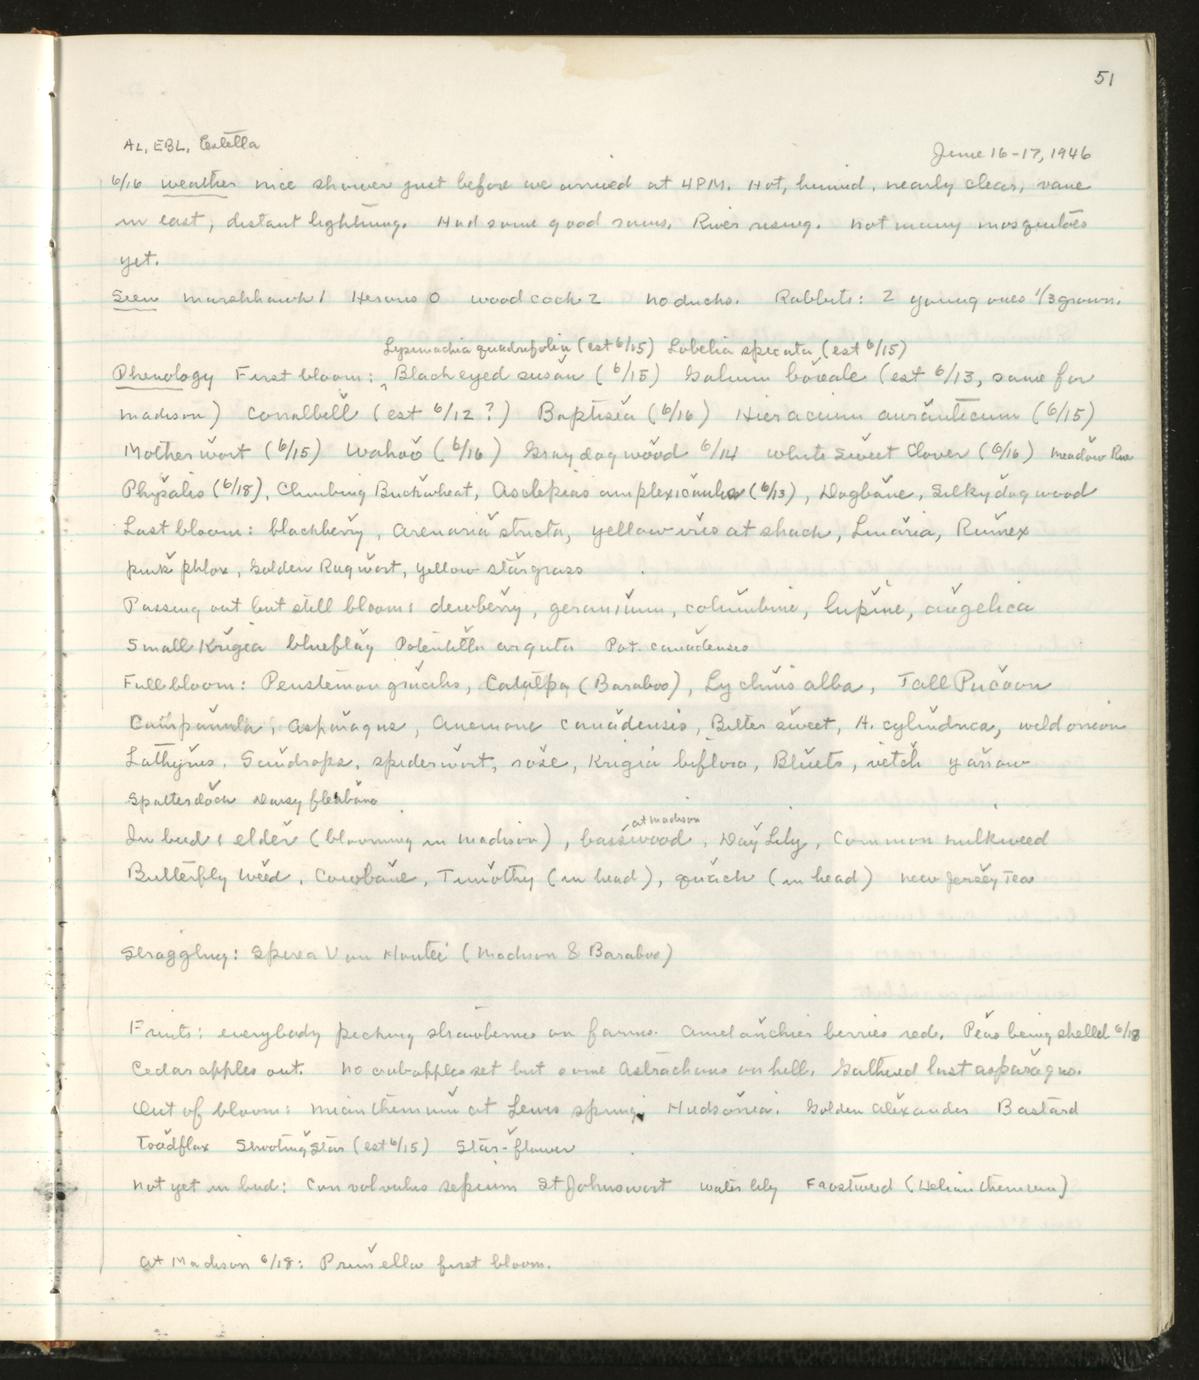 51
AL, EBL, Estella
June 16-17, 1946
6/16 weather nice shower just before we arrived at 4PM. Hot, humid, nearly clear, vane
in east, distant lightning. Had some good rains. River rising. Not many mosquitoes
yet.
Seen Marshhawk 1 Herons 0 woodcock 2 No ducks. Rabbits: 2 young ones 1/3 grown.
Lysimachia quadrifolia (est 6/15) Lobelia spicata (est 6/15)
Phenology First bloom: Blackeyed susan (6/15) Galium boreale (est 6/13, same for
Madison) Corralbell (est 6/12?) Baptisia (6/16) Hieracium auranticum (6/15)
Motherwort (6/15) Wahoo (6/16) Gray dogwood 6/14 White Sweet Clover (6/16) Meadow Rue
Physalis (6/18), Climbing Buckwheat, Asclepias amplexicaulis (6/13), Dogbane, Silky dogwood
Last bloom: blackberry, Arenaria stricta, yellow iris at shack, Linaria, Rumex
pink phlox, Golden Ragwort, Yellow stargrass
Passing out but still bloom: dewberry, geranium, columbine, lupine, angelica
Small Krigia blueflag Potentilla arguta Pot. canadensis
Full bloom: Penstemon gracilis, Catalpa (Baraboo), Lychnis alba, Tall Pucoon
Campanula, Asparagus, Anemone canadensis, Bitter sweet, A. cylindrica, wild onion
Lathyrus, Sundrops, spiderwort, rose, Krigia biflora, Bluets, vetch yarrow
Spatterdock Daisy fleabane
at Madison
In bud: elder (blooming in Madison), basswood, Day Lily, Common milkweed
Butterfly Weed, Cowbane, Timothy (in head), quack (in head) New Jersey Tea
Straggling: Spirea Van Houtei (Madison & Baraboo)
Fruits: everybody picking strawberries on farms. Amelanchier berries red. Peas being shelled 6/18
Cedar apples out. No crabapples set but some Astrachans on hill. Gathered last asparagus.
Out of bloom: Mianthemum at Lewis spring, Hudsonia. Golden Alexander Bastard
Toadflax Shooting Star (est 6/15) Star-flower
Not yet in bud: Convolvulus sepium St Johnswort water lily Frostweed (Helianthemum)
At Madison 6/18: Prunella first bloom.